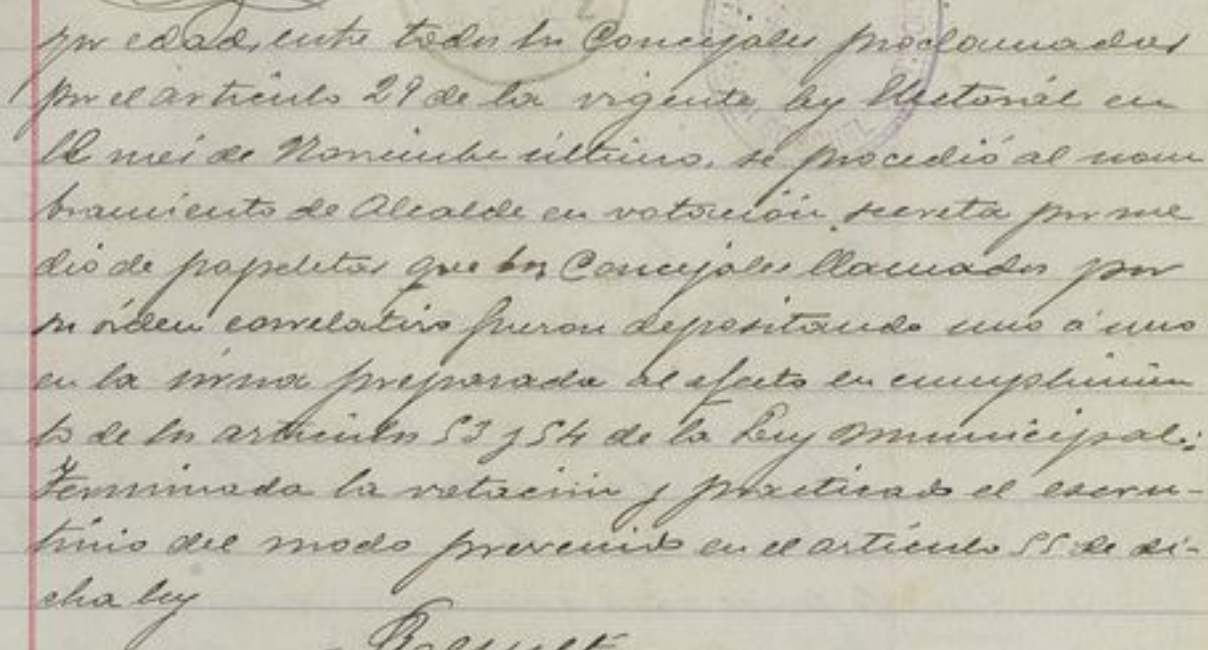 por edad, entre todos los Concejales proclamados
por el artículo 29 de la vigente ley Electoral en
el mes de Noviembre último, se procedió al nom
bramiento de Alcalde en votación secreta por me
dio de papeletas que los Concejales llamados por
su órden correlativo fueron depositando uno á uno
en la urna preparada al efecto en cumplimien
to de los artículos 53 y 54 de la Ley Municipal.:
Terminada la votación y practicado el escru-
tinio del modo prevenido en el artículo 55 de di-
cha ley